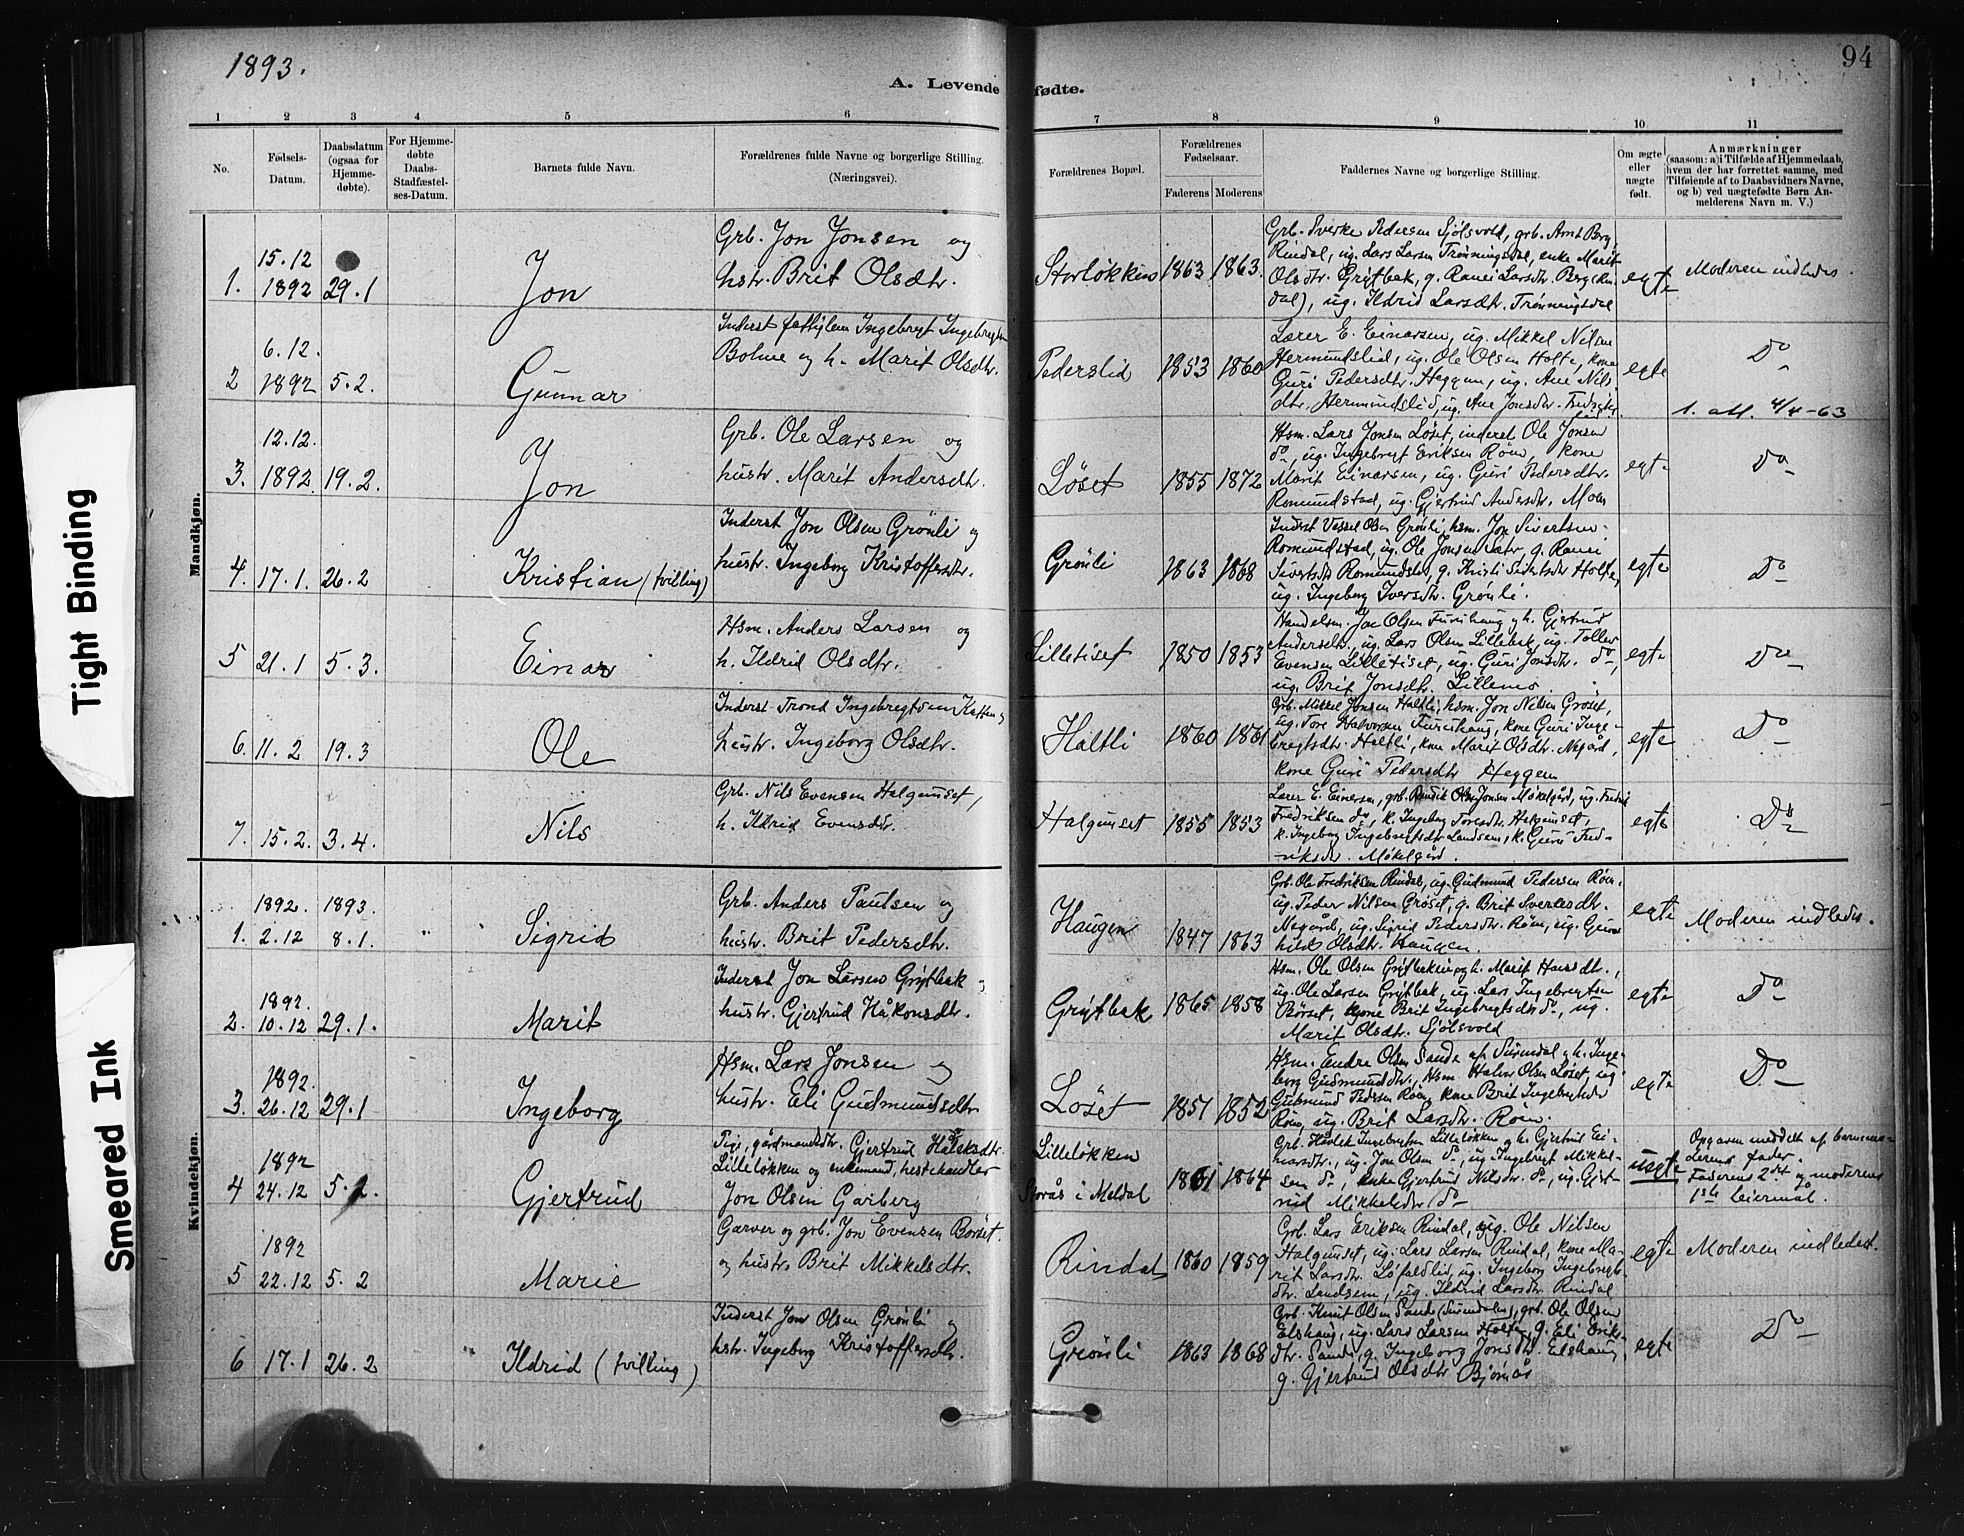 1893.
94
A. Levende fødte.
1 2 3 4 5 6 7 8 9 10 11
No.
Fødsels-
Datum.
Daabsdatum
(ogsaa for
Hjemme-
døbte).
For Hjemme-
døbte
Daabs-
Stadfæstel-
ses-Datum.
Barnets fulde Navn.
Forældrenes fulde Navne og borgerlige Stilling.
(Næringsvei).
Forældrenes Bopæl.
Forældrenes
Fødselsaar.
Faderens Moderens
Faddernes Navne og borgerlige Stilling.
Om ægte
eller
uægte
født.
Anmærkninger
(saasom: a) i Tilfælde af Hjemmedaab,
hvem der har forrettet samme, med
Tilføiende af to Daabsvidners Navne,
og b) ved uægtefødte Børn An-
melderens Navn m. V.)
Mandkjøn.
1. 15.12 1892 29.1 Jon
Grb. Jon Jonsen og
hstr. Brit Olsdtr.
Storløkken 1863 1863.
Grb. Sverke Pedersen Sjølsvold, grb. Arnt Berg
Rindal, ug. Lars Larsen Trønningsdal, enke Marit
Olsdtr. Grytbak, g. Ranei Larsdtr. Berg (Rin-
dal), ug. Ildrid Larsdtr. Trønningsdal
egte
Moderen indledes.
2 6.12. 1892 5.2. Gunnar
Inderst Ingebrygt
og h. Marit Olsdtr.
Pederslid 1853 1860
Lærer E. Einarsen, ug. Mikkel Nilsen
Hermundslid, ug. Ole Olsen Holte, kone
Guri Pedersdtr. Heggem, ug. Ane Nils
dtr. Hermundslid, ug. Ane Jonsdtr.
egte
Do
1. att. 4/4-63
3. 12.12. 1892 19.2. Jon
Grb. Ole Larsen og
hustr. Marit Andersdtr.
Løset 1855 1872
Hsm. Lars Jonsen Løset, inderst Ole Jonsen
do, ug. Ingebrygt Eriksen Røen, kone
Marit Einarsen, ug. Guri Pedersdtr.
Romundstad, ug. Gjertrud Andersdtr. Moen
egte
Do
4. 17.1. 26.2 Kristian (tvilling)
Inderst Jon Olsen Grønli og
hustr. Ingeborg Kristoffersdtr.
Grønli 1863 1868
Inderst Olsen Grønli, hsm. Jon Sivertsen
Romundstad, ug. Ole Jonsen Sæter, g. Ranei
Sivertsdtr Romundstad, g. Kristi Sivertsdtr Holte,
ug. Ingeborg Iversdtr. Grønli.
egte
Do
5 21.1 5.3. Einar
Hsm. Anders Larsen og
h. Ildrid Olsdtr.
Lilletiset 1850 1853
Handelsm. Jon Olsen Furuhaug og h. Gjertrud
Andersdtr., ug. Lars Olsen Lillebak, ug. Tollev
Evensen Lilletiset, ug. Guri Jonsdtr. do,
ug. Brit Jonsdtr. Lillemo
egte
Do
6. 11.2 19.3 Ole
Inderst Trond Ingebregtsen
hustr. Ingeborg Olsdtr.
Haltli 1860 1861
Grb. Mikkel Jonsen Haltli, hsm. Jon Nilsen Grøset,
ug. Tore Halvorsen Furuhaug, kone Guri Inge-
bregtsdtr. Haltli, kone Marit Olsdtr. Negård,
kone Guri Pedersdtr Heggem
egte
Do
7. 15.2. 3.4. Nils
Grb. Nils Evensen Halgunset,
h. Ildrid Evensdtr.
Halgunset 1855 1853
Lærer E. Einarsen, grb. Jonsen Møkelgård, ug. Fredrik
Fredriksen do, k. Ingeborg Toresdtr. Halgunset,
k. Ingeborg Ingebregtsdtr Landsem, k. Guri Fred-
riksdtr. Møkelgård.
egte
Do
Kvindekjøn.
1. 1892. 2.12 1893. 8.1. Sigrid
Grb. Anders Paulsen og
hustr. Brit Pedersdtr.
Haugen 1847 1863
Grb. Ole Fredriksen Rindal, ug. Gudmund Pedersen Røen,
ug. Peder Nilsen Grøset, g. Brit Sverkesdtr.
Negårds, ug. Sigrid Pedersdtr. Røen, ug. Gun-
hild Olsdtr. Haugen.
egte
Moderen indledes.
2. 1892. 10.12 29.1. Marit
Inderst Jon Larsen Grytbak og
hustr. Gjertrud Håkonsdtr.
Grytbak 1865 1858
Hsm. Ole Olsen Grytbakken og h. Marit Hansdtr.,
ug. Ole Larsen Grytbak, ug. Lars Ingebregtsen
Børset, kone Brit Ingebregtsdtr do, ug.
Marit Olsdtr. Sjølsvold
egte
Do
3. 1892. 26.12 29.1 Ingeborg
Hsm. Lars Jonsen og
hustr. Eli Gudmundsdtr.
Løset 1851 1852
Hsm. Endre Olsen Sande af Surendal og h. Inge-
borg Gudmundsdtr., Hsm. Halvor Olsen Løset, ug.
Gudmund Pedersen Røen, kone Brit Ingebregtsdtr
Røen, ug. Brit Larsdtr. Røen.
egte
Do
4 1892 24.12 5. Gjertrud
Pige, gårdmandsdtr. Gjertrud
Lilleløkken og enkemand, hestehandler
Jon Olsen Garberg
Lilleløkken
Storås i Meldal
1861 1864
Grb. Ingebregtsen Lilleløkken og h. Gjertrud Ei-
narsdtr., ug. Jon Olsen do, ug. Ingebrygt Mikkel-
sen do, enke Gjertrud Nilsdtr. do, ug. Gjert-
rud Mikkelsdtr do
uegte
Opgaven meddelt af barnemo-
derens fader.
Faderens 2det og moderens
1ste leiermål.
5 1892 22.12 5.2 Marie
Garver og grb. Jon Evensen Børset
og hustr. Brit Mikkelsdtr.
Rindal 1860 1859
Grb. Lars Eriksen Rindal, ug. Ole Nilsen
Halgunset, ug. Lars Larsen Rindal, kone Ma-
rit Larsdtr. Løfaldlid, ug. Ingeborg Ingebregts-
dtr. Landsem, ug. Ildrid Larsdtr. Rindal
egte
Moderen indledes.
6 17.1 26.2 Ildrid (tvilling)
Inderst Jon Olsen Grønli og
hstr. Ingeborg Kristoffersdtr.
Grønli 1863 1868
Grb. Knut Olsen Sande (Surendalen), grb. Ole Olsen
Elshaug, ug. Lars Larsen Holte, g. Eli Eriks-
dtr. Sande, g. Ingeborg Jonsdtr. Elshaug,
g. Gjertrud Olsdtr Bjørnås
egte
Do
Tight Binding
Smeared Ink